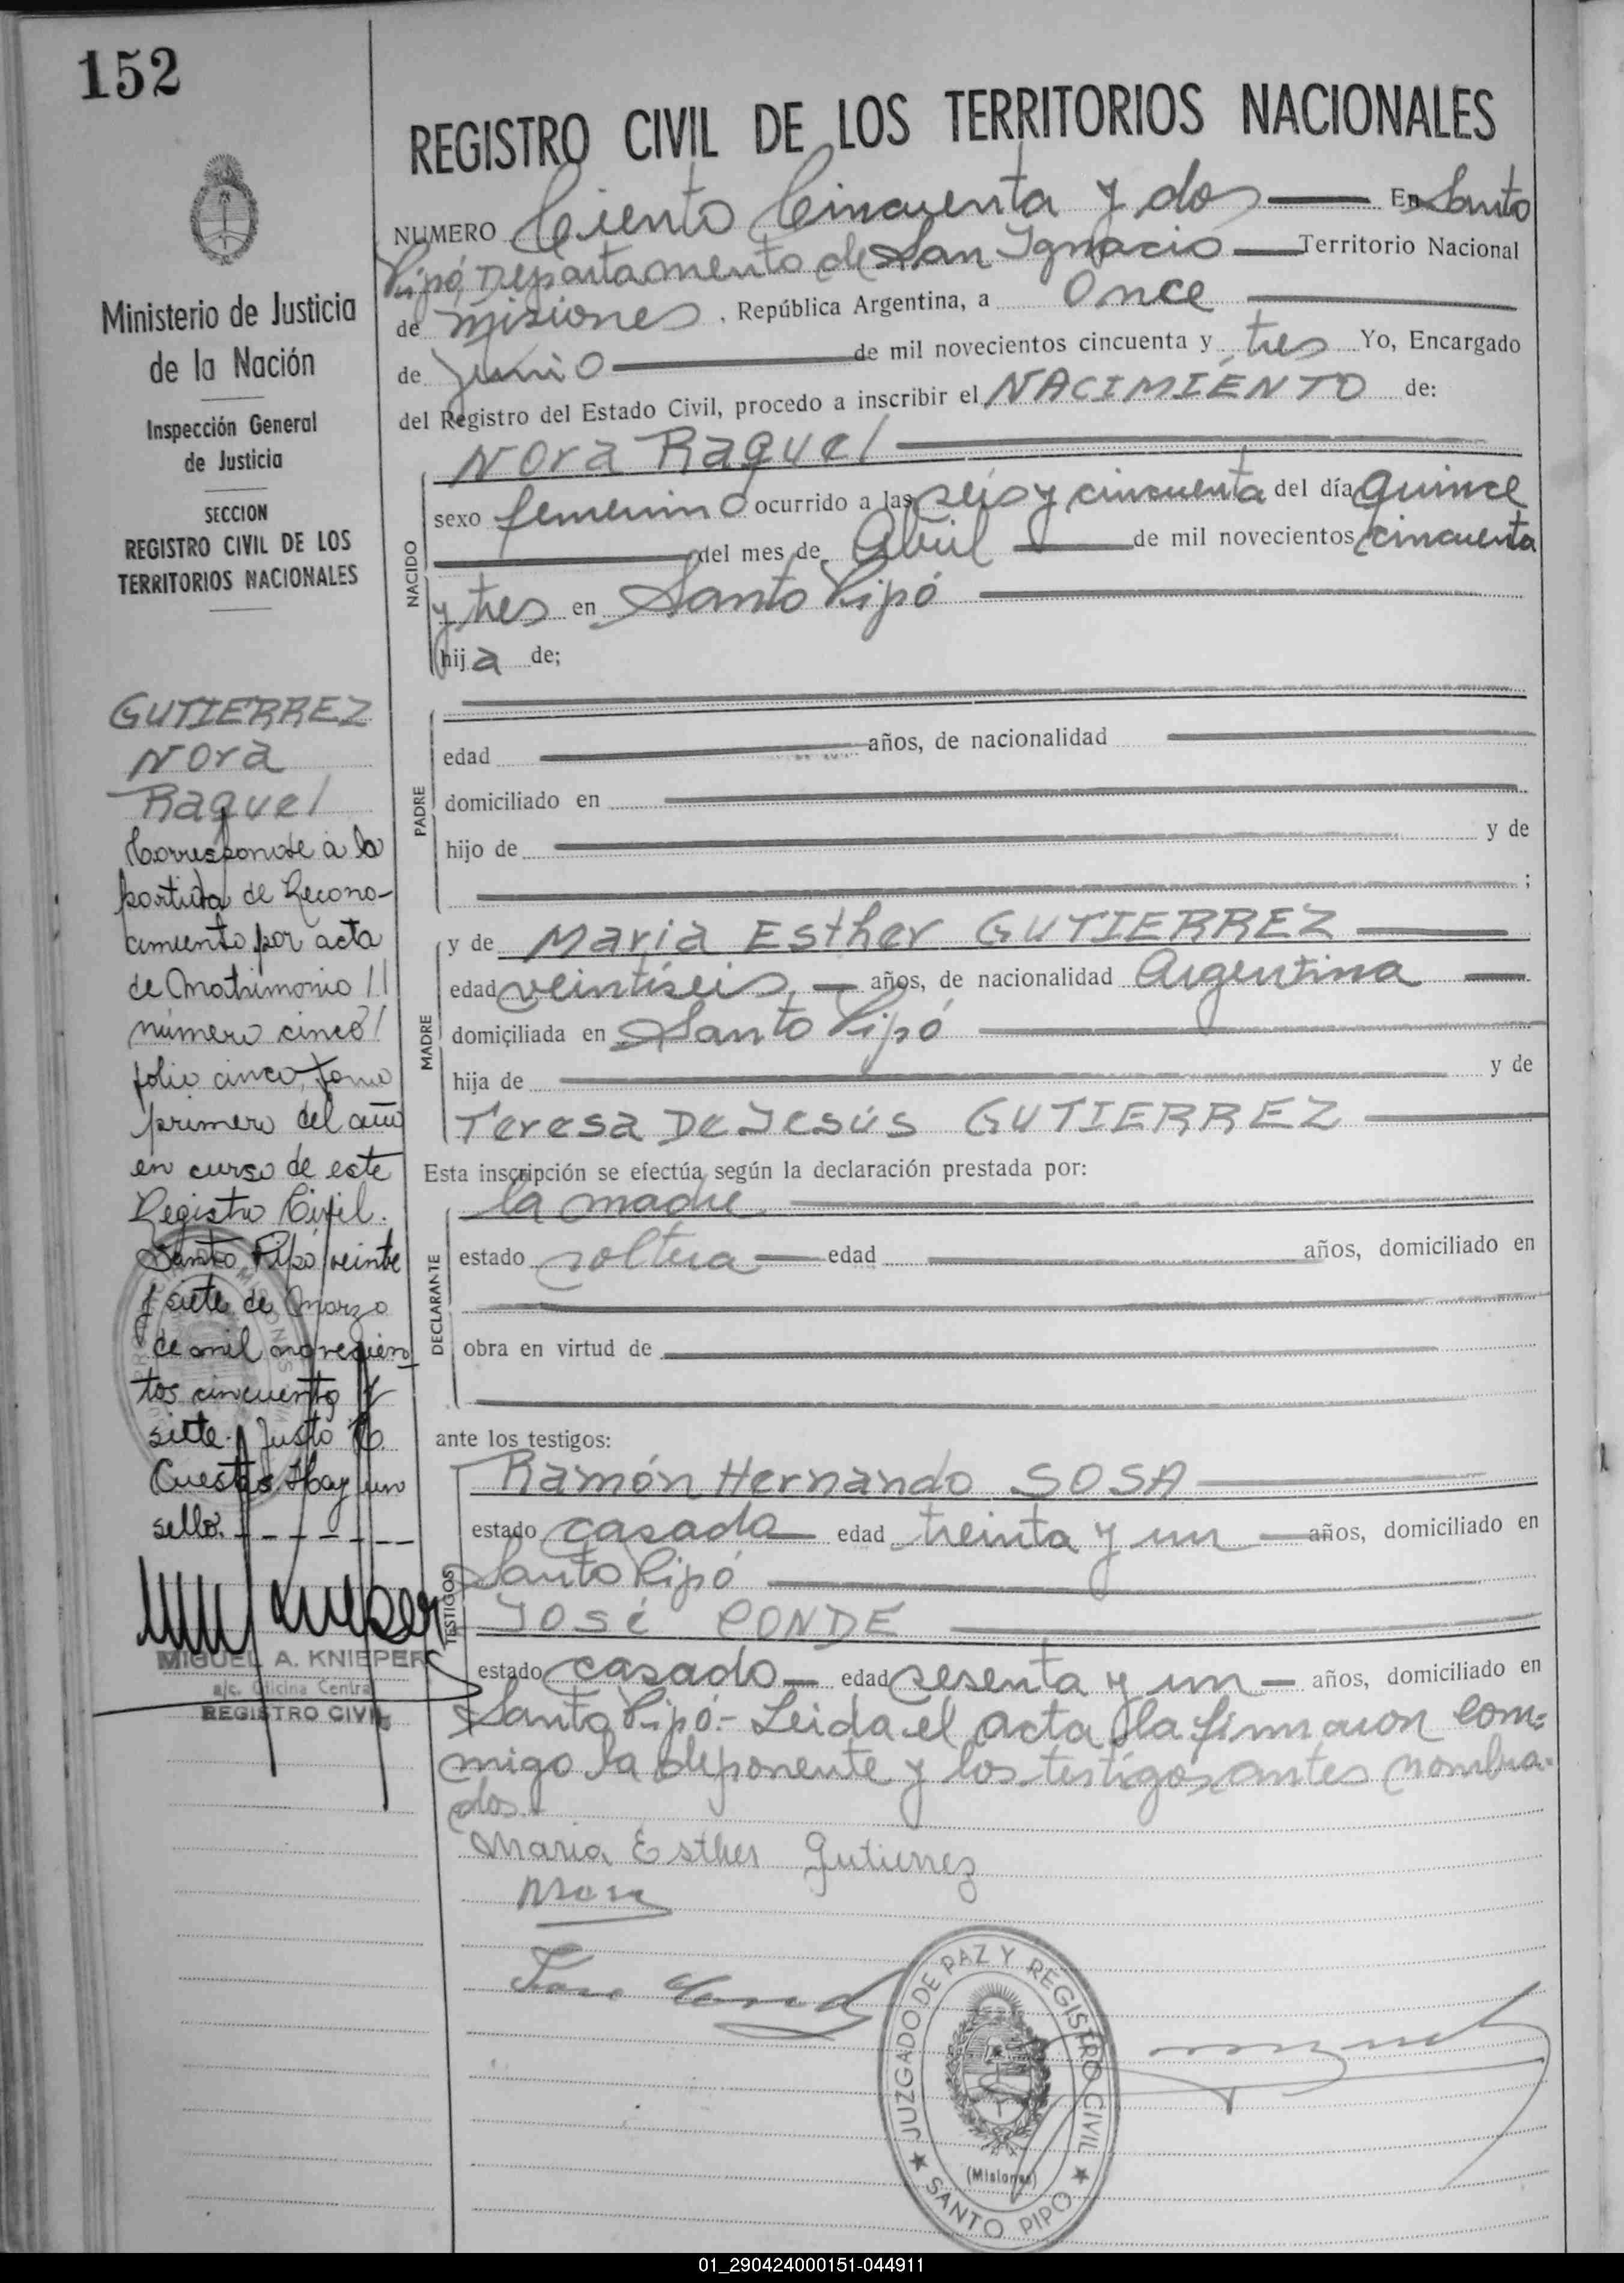 152
Ministerio de Justicia
de la Nación
Inspección General
de Justicia
SECCION
REGISTRO CIVIL DE LOS
TERRITORIOS NACIONALES
GUTIERREZ
Nora
Raquel
Corresponde a la
partida de Recono-
cimiento por acta
de Matrimonio
número cinco
folio cinco, tomo
primero del año
en curso de este
Registro Civil.
Santo Pipó veinte
y siete de Marzo
de mil novecien_
tos cincuenta y
siete. Justo
Cuestas Hay un
sello. _ _ _ _ _ _
MIGUEL A. KNIEPER
a/c. Oficina Central
REGISTRO CIVIL
REGISTRO CIVIL DE LOS TERRITORIOS NACIONALES
NUMERO Ciento Cincuenta y dos En Santo
Pipó, Departamento de San Ignacio Territorio Nacional
de Misiones, República Argentina, a Once
de Junio de mil novecientos cincuenta y tres Yo, Encargado
del Registro del Estado Civil, procedo a inscribir el NACIMIENTO de:
Nora Raquel
NACIDO
sexo femenino ocurrido a las seis y cincuenta del día quince
del mes de Abril de mil novecientos cincuenta
y tres en Santo Pipó
hija de;
PADRE
edad años, de nacionalidad
domiciliado en
hijo de y de
;
MADRE
y de Maria Esther GUTIERREZ
edad veintiseis, años, de nacionalidad Argentina
domiciliada en Santo Pipó
hija de y de
Teresa De Jesús GUTIERREZ
Esta inscripción se efectúa según la declaración prestada por:
DECLARANTE
la madre
estado soltera edad años, domiciliado en
obra en virtud de
ante los testigos:
TESTIGOS
Ramón Hernando SOSA
estado casado edad treinta y un años, domiciliado en
Santo Pipó
José CONDE
estado casado edad sesenta y un años, domiciliado en
Santo Pipó.- Leida el acta la firmaron con=
migo la deponente y los testigos antes nombra-
dos.
Maria Esther Gutierrez
JUZGADO DE PAZ Y REGISTRO CIVIL
(Misiones)
★ SANTO PIPO ★
01_290424000151-044911